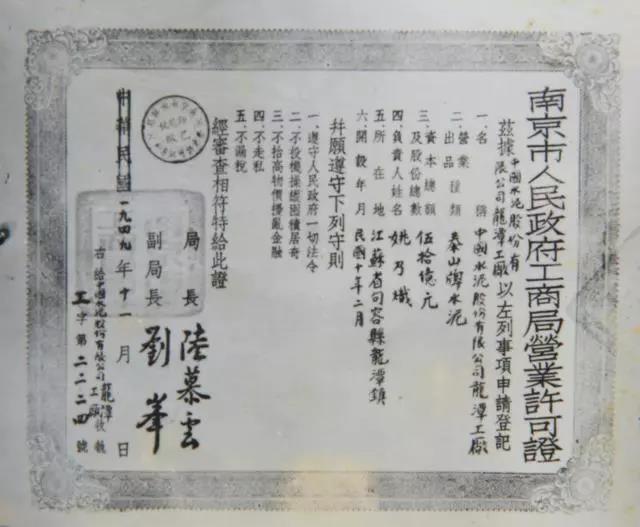 南京市人民政府工商局營業許可證
茲據中國水泥股份有限公司龍潭工廠以左列事項申請登記
一.名稱 中國水泥股份有限公司龍潭工廠
二.營業種類 出品 泰山牌水泥
三.資本總額及股份總數 伍拾億元
四.負責人姓名 姚乃熾
五.所在地 江蘇省句容縣龍潭鎮
六.開設年月 民國十年二月
并願遵守下列守則
一.遵守人民政府一切法令
二.不投機操縱囤積居奇
三.不抬高物價擾亂金融
四.不走私
五.不漏稅
經審查相符特給此證
局長 陸慕雲
副局長 劉峯
中華民國一九四九年十一月 日
右給中國水泥股份有限公司龍潭工廠收執
工字第二二二四號